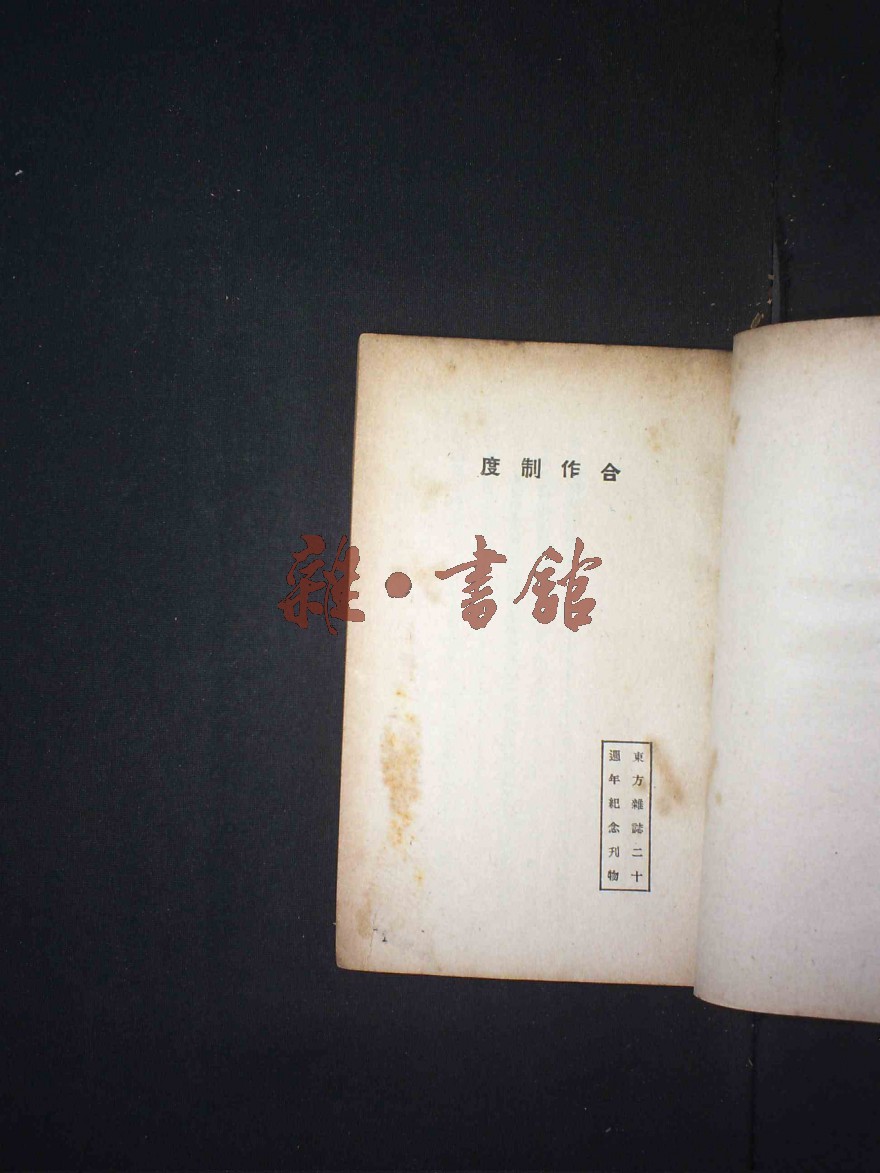 合作制度
雜·書館
東方雜誌二十
週年紀念刊物